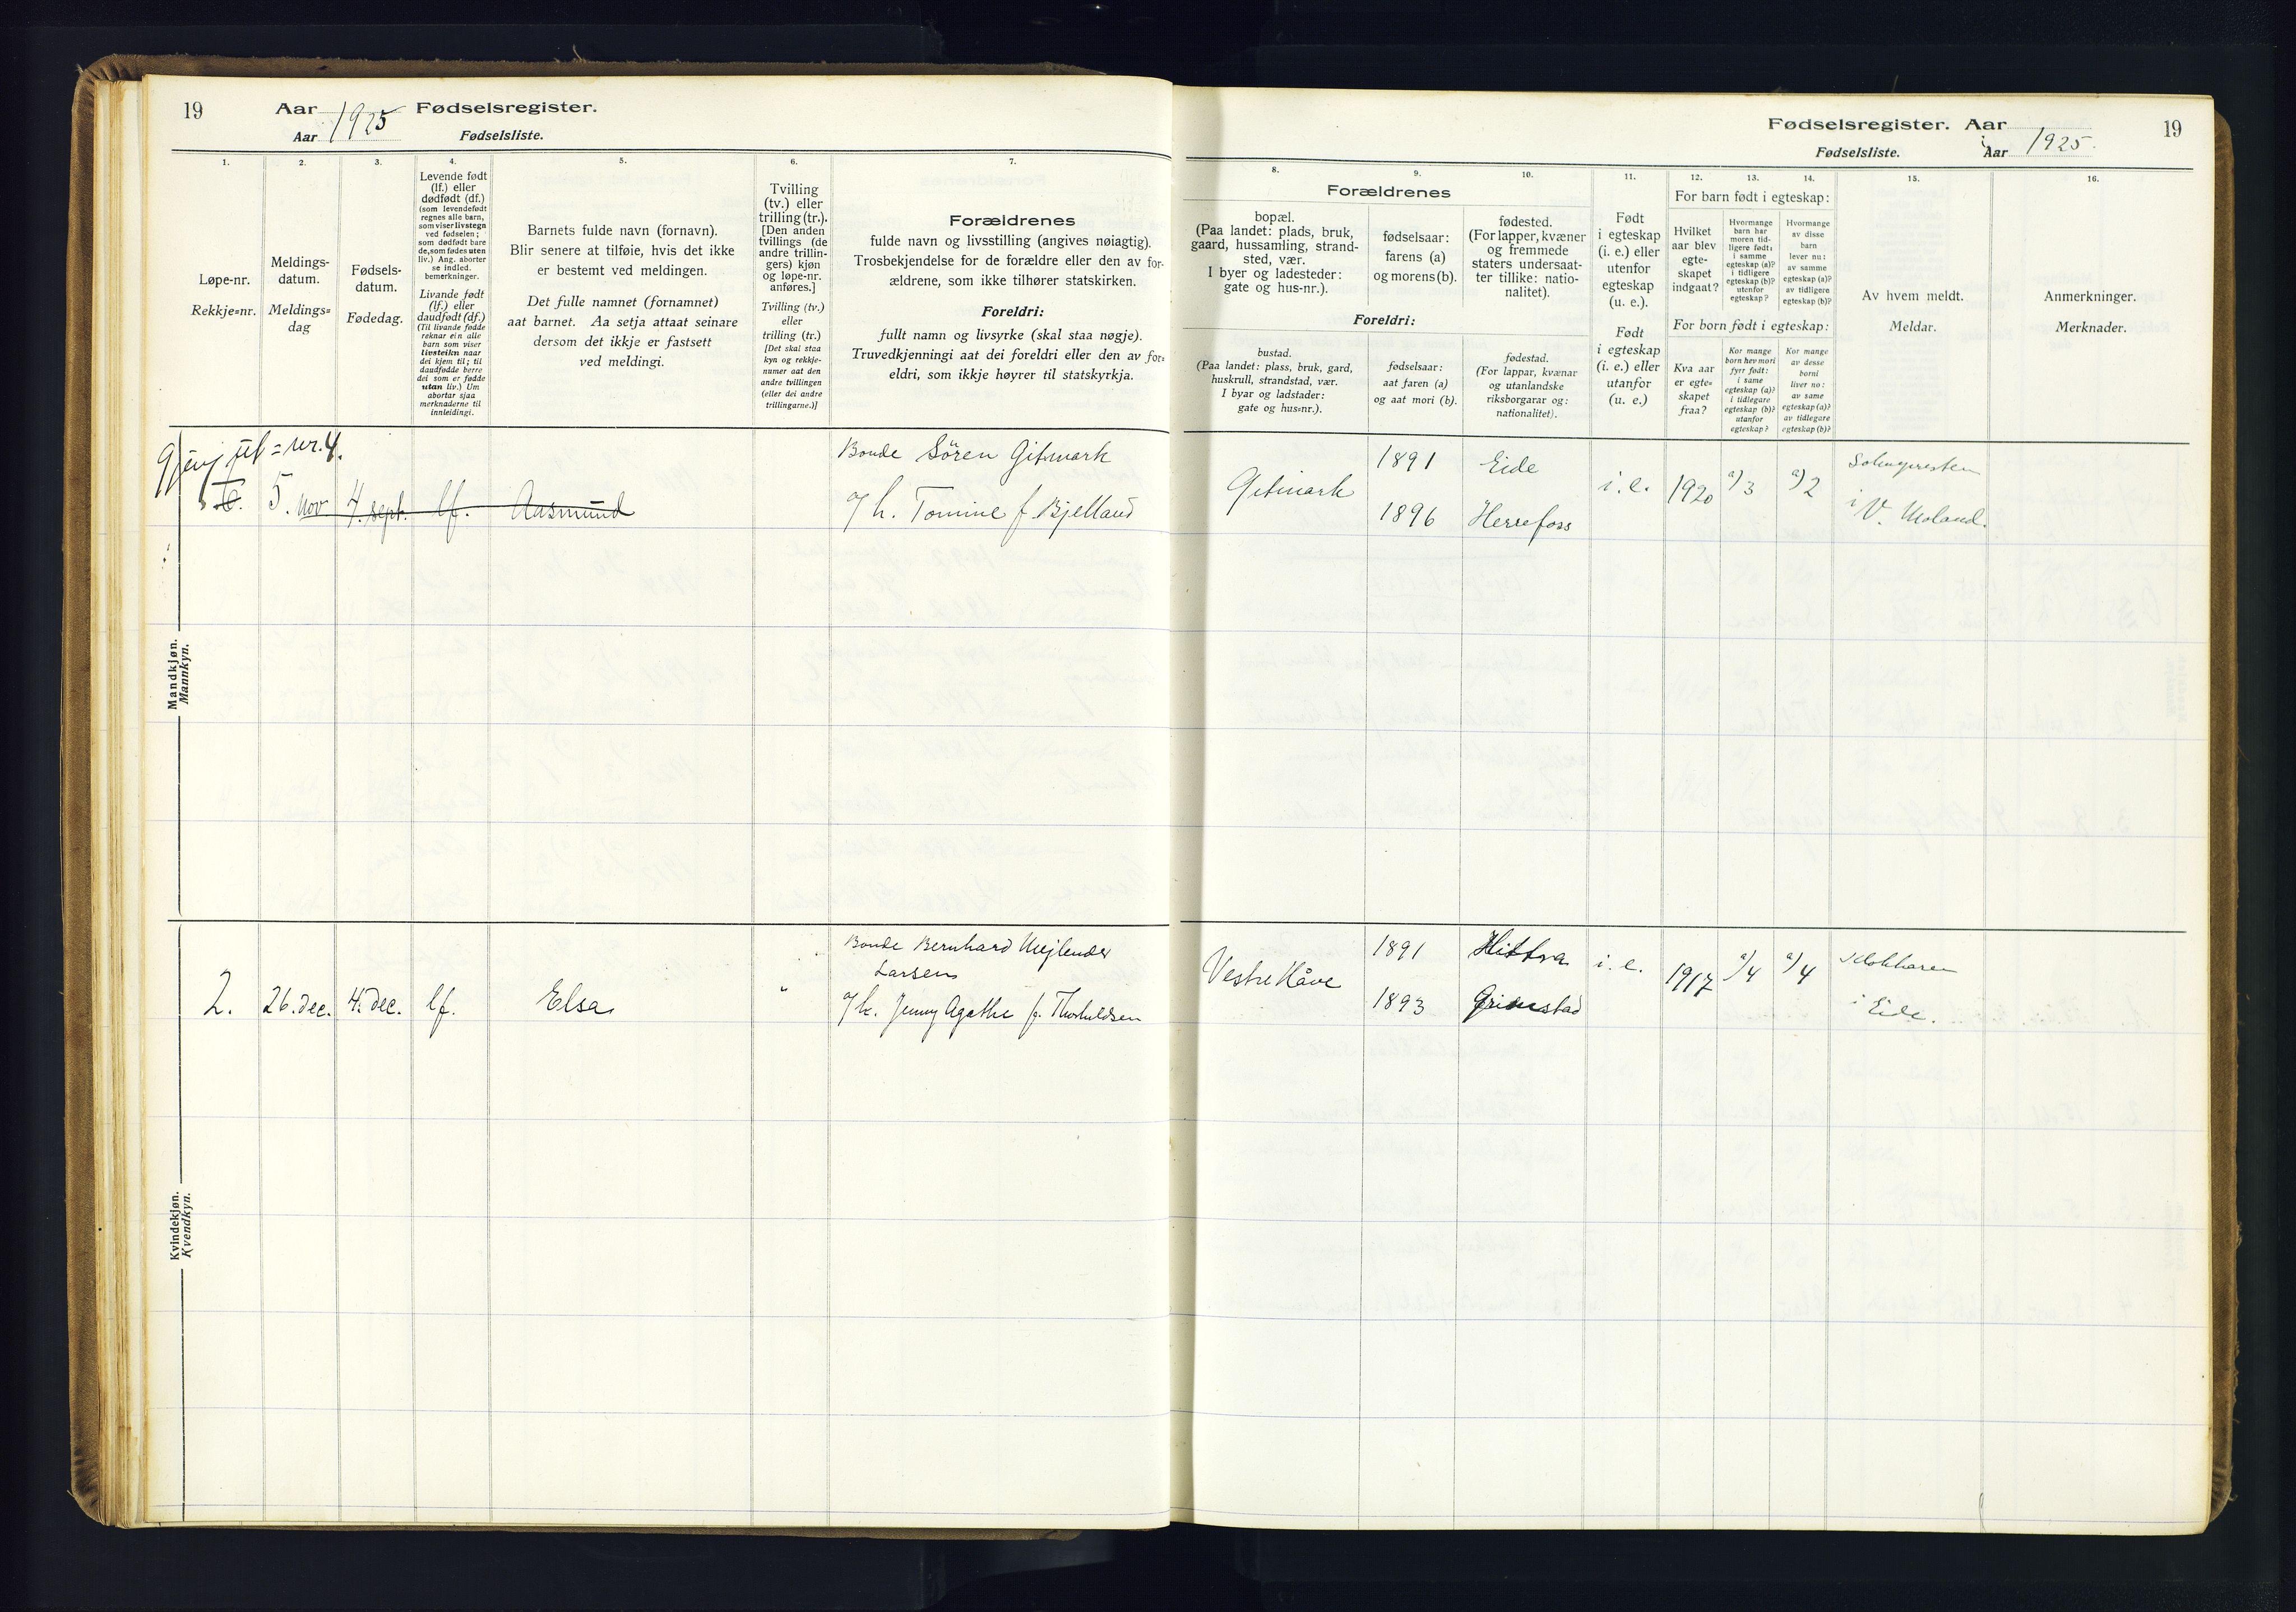 19
Aar 1925 Fødselsregister.
Aar Fødselsliste.
1.
2.
3.
4.
5.
6.
7.
Løpe-nr.
Rekkje=nr.
Meldings-
datum.
Meldings=
dag
Fødsels-
datum.
Fødedag.
Levende født
(lf.) eller
dødfødt (df.)
(som levendefødt
regnes alle barn,
som viser livstegn
ved fødselen;
som dødfødt bare
de, som fødes uten
liv.) Ang. aborter
se indled.
bemerkninger.
Livande født
(lf.) eller
daudfødt (df.)
(Til livande fødde
reknar ein alle
barn som viser
livsteikn naar
dei kjem til; til
daudfødde berre
dei som er fødde
utan liv.) Um
abortar sjaa
merknaderne til
innleidingi.
Barnets fulde navn (fornavn).
Blir senere at tilføie, hvis det ikke
er bestemt ved meldingen.
Det fulle namnet (fornamnet)
aat barnet. Aa setja attaat seinare
dersom det ikkje er fastsett
ved meldingi.
Tvilling
(tv.) eller
trilling (tr.).
[Den anden
tvillings (de
andre trillin-
gers) kjøn
og løpe-nr.
anføres.]
Tvilling (tv.)
eller
trilling (tr.)
[Det skal staa
kyn og rekkje-
numer aat den
andre tvillingen
(eller dei andre
trillingarne.)]
Forældrenes
fulde navn og livsstilling (angives nøiagtig).
Trosbekjendelse for de forældre eller den av for-
ældrene, som ikke tilhører statskirken.
Foreldri:
fullt namn og livsyrke (skal staa nøgje).
Truvedkjenningi aat dei foreldri eller den av for=
eldri, som ikkje høyrer til statskyrkja.
Gjeng ut = nr. 4.
5. nov. 4. sept. lf. Aasmund
Bonde Sören Gitmark
o/h. Tomine f. Bjelland
Mandkjøn.
Mannkyn.
Bonde Bernhard Mejlender
Larsen
2. 26. dec. 4. dec. lf. Elsa " o/h. Jenny Agathe f. Thorkildsen
Kvindekjøn.
Kvendkyn.
Fødselsregister. Aar 19
Fødselsliste. Aar 1925.
8.
9.
10.
11.
12.
13.
14.
15.
16.
Forældrenes
bopæl.
(Paa landet: plads, bruk,
gaard, hussamling, strand-
sted, vær.
I byer og ladesteder:
gate og hus-nr.).
fødselsaar:
farens (a)
og morens (b).
fødested.
(For lapper, kvæner
og fremmede
staters undersaat-
ter tillike: natio-
nalitet).
Foreldri:
bustad.
(Paa landet: plass, bruk, gard,
huskrull, strandstad, vær.
I byar og ladstader:
gate og hus=nr.).
fødselsaar:
aat faren (a)
og aat mori (b).
fødestad.
(For lappar, kvænar
og utanlandske
riksborgarar og:
nationalitet).
Født
i egteskap
(i. e.) eller
utenfor
egteskap
(u. e.).
Født
i egteskap
(i. e.) eller
utanfor
(u. e.)
For barn født i egteskap:
Hvilket
aar blev
egte-
skapet
indgaat?
Hvormange
barn har
moren tid-
ligere født:
i samme
egteskap (a)?
i tidligere
egteskap (b)?
utenfor
egteskap?
Hvormange
av disse
barn
lever nu:
av samme
egteskap (a)?
av tidligere
egteskap (b)?
For born født i egteskap:
Kva aar
er egte=
skapet
fraa?
Kor mange
born hev mori
fyrr født:
i same
egteskap (a)?
i tidlegare
egteskap (b)?
utanfor
egteskap?
Kor mange
av desse
borni
liver no:
av same
egteskap (a)?
av tidlegare
egteskap (b)?
Av hvem meldt.
Meldar.
Anmerkninger.
Merknader.
Gitmark 1891 Eide i. e. 1920 a/3 a/2 Soknepresten
1896 Herrefoss i V. Moland.
Vestre Håve 1891 Hittra i. e. 1917 a/4 a/4 Klokkaren
1893 Grimstad i Eide.